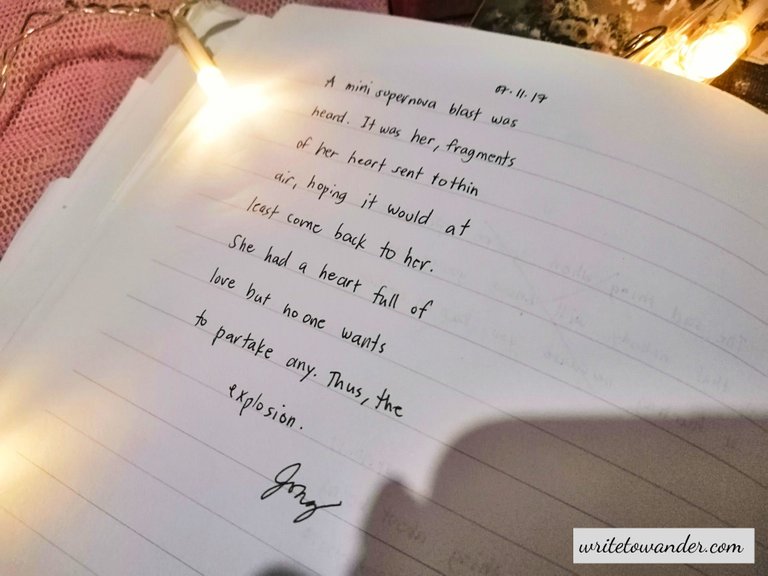 07.11.17
A mini supernova blast was
heard. It was her, fragments
of her heart sent to thin
air, hoping it would at
least come back to her.
She had a heart full of
love but no one wants
to partake any. Thus, the
explosion.
writetowander.com